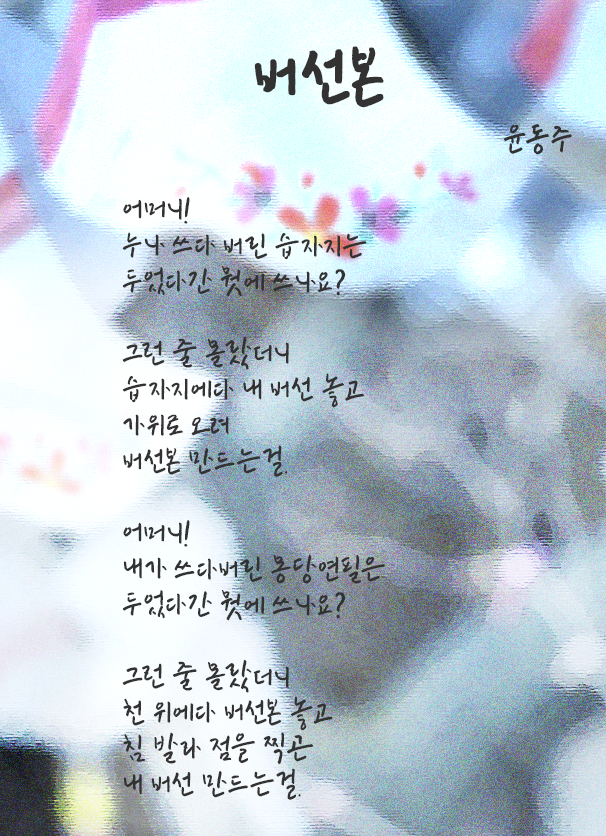 버선본
윤동주
어머니!
누나 쓰다 버린 습자지는
두었다간 뭣에 쓰나요?
그런 줄 몰랐더니
습자지에다 내 버선 놓고
가위로 오려
버선본 만드는걸.
어머니!
내가 쓰다버린 몽당연필은
두었다간 뭣에 쓰나요?
그런 줄 몰랐더니
천 위에다 버선본 놓고
침 발라 점을 찍곤
내 버선 만드는걸.